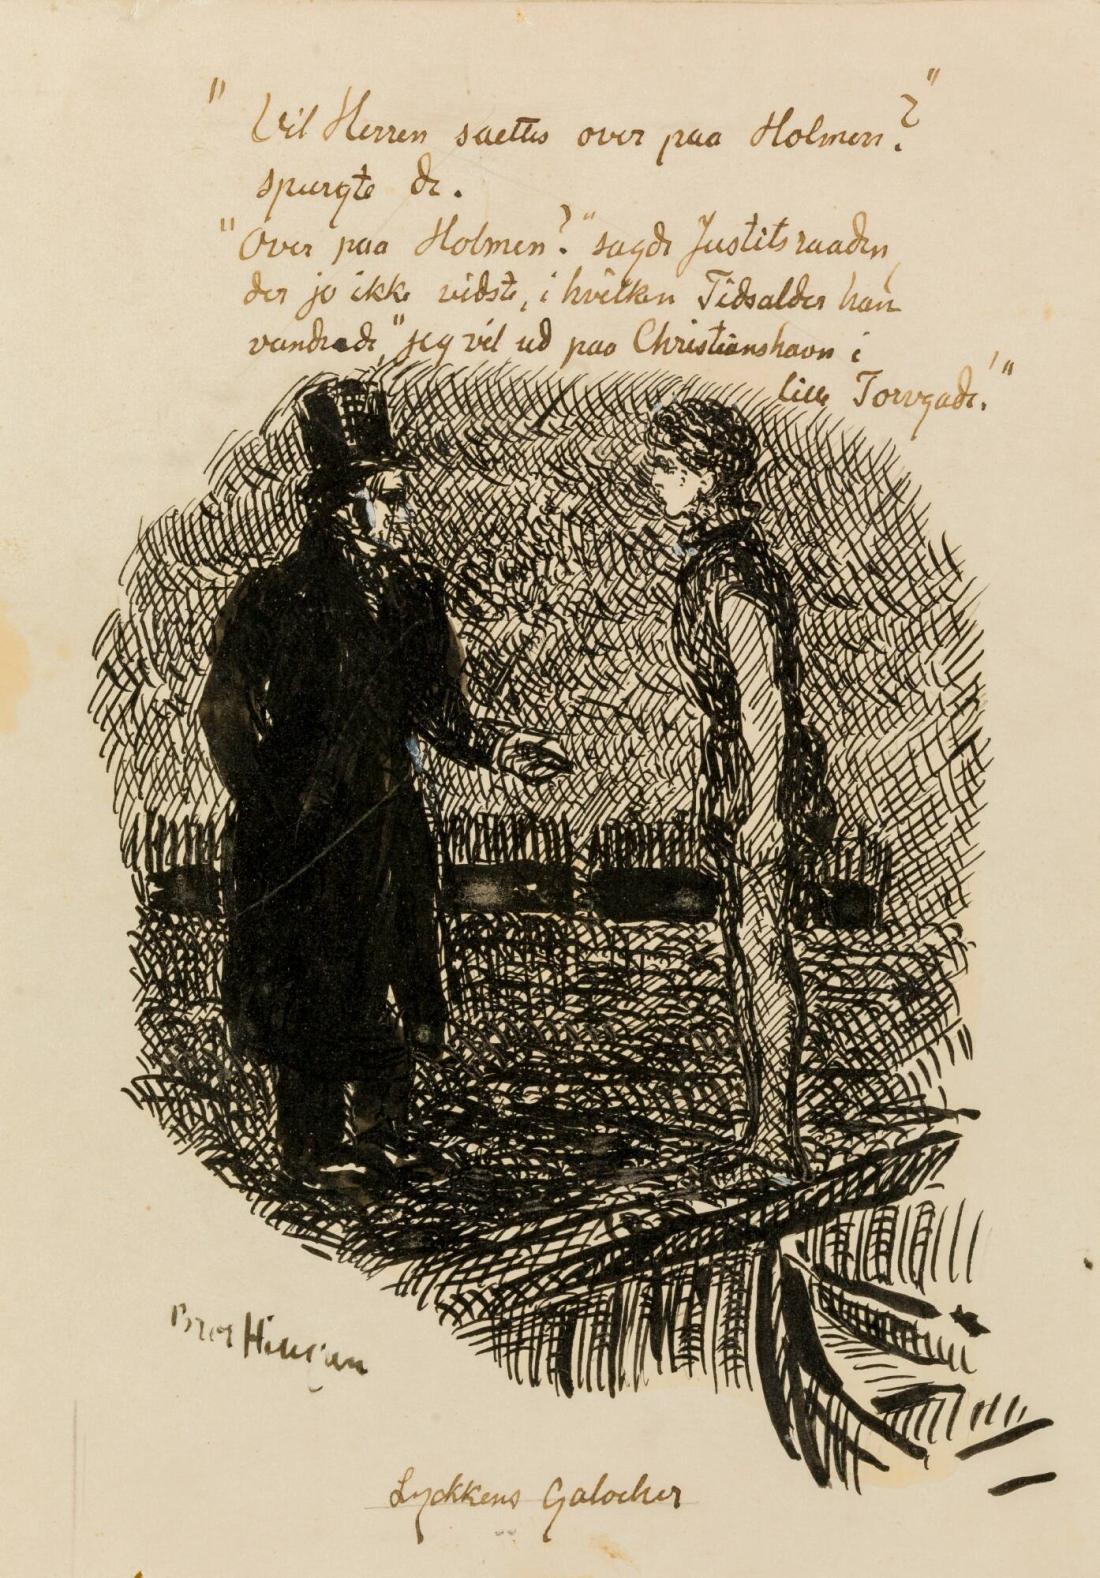 "Vil Herren saettes over paa Holmen?"
spurgte de.
"Over paa Holmen?" sagde Justitsraaden,
der jo ikke vidste, i hvilken Tidsalder han
vandrede, "jeg vil ud paa Christianshavn i
lille Torvgade!"
Lyckkens Galocher